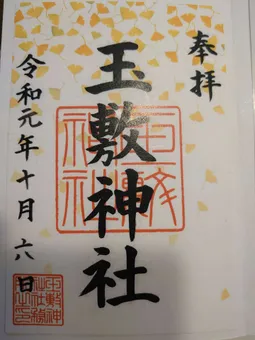 奉拝
玉敷神社
令和元年十月六日
玉敷神社